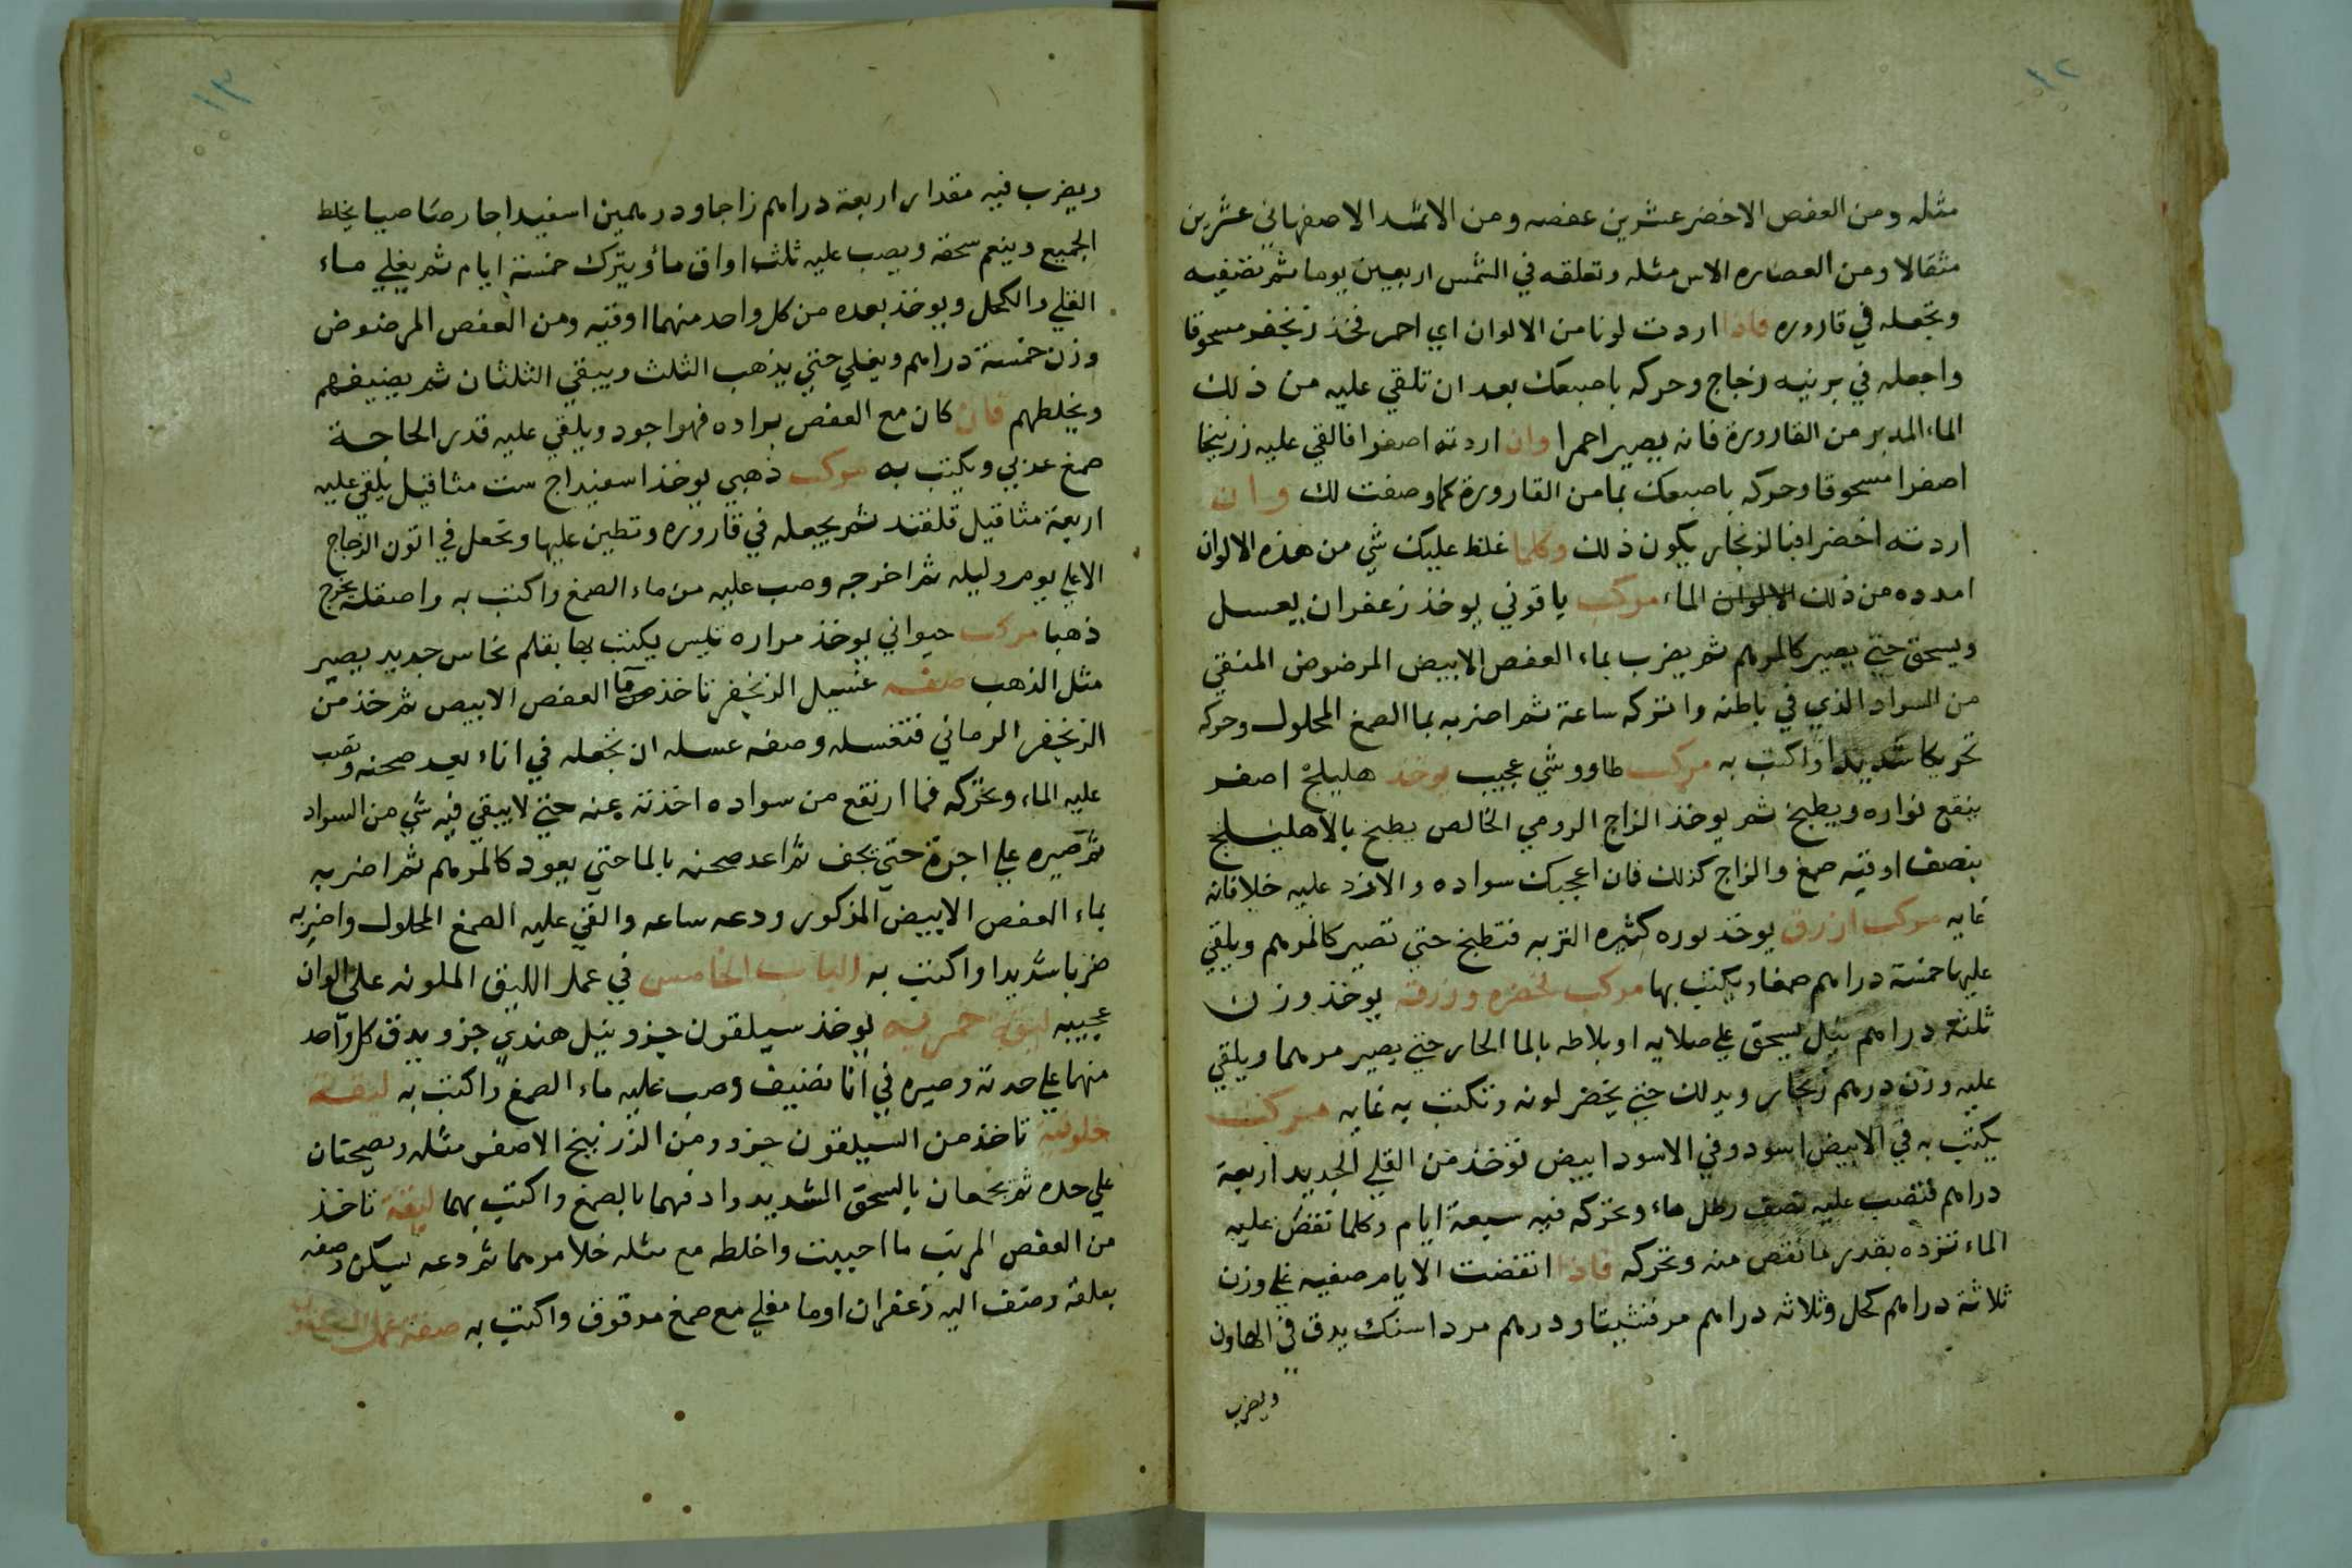 ١٢
مثله ومن العفص الاخضر عشرين عفصه ومن الاثمد الاصفهاني عشرين
مثقالا ومن العصاره الاس مثله وتعلقه في الشمس اربعين يوما ثم تصفيه
وتجعله في قاروره فاذا اردت لونا من الالوان اي احمر فخذ زنجفر مسحوقا
واجعله في برنيه زجاج وحركه باصبعك بعد ان تلقي عليه من ذلك
الماء المدبر من القارورة فانه يصير احمرا وان اردته اصفرا فالقي عليه زرنيخا
اصفرا مسحوقا وحركه باصبعك بما من القارورة كما وصفت لك وان
اردته اخضرا فبالزنجار يكون ذلك وكلما غلظ عليك شي من هذه الالوان
امدده من ذلك الالوان الماء مركب ياقوتي يوخذ زعفران بعسل
ويسحق حتي يصير كالمرهم ثم يضرب بماء العفص الابيض المرضوض المنقي
من السواد الذي في باطنه واتركه ساعة ثم اضربه بما الصمغ المحلول وحركه
تحريكا شديدا واكتب به مركب طاووشي عجيب يوخذ هليلج اصفر
ينقع نواره ويطبخ ثم يوخذ الزاج الرومي الخالص يطبخ بالاهليلج
بنصف اوقيه صمغ والزاج كذلك فان اعجبك سواده والا زد عليه خلا فانه
غايه مركب ازرق يوخذ نوره كثيره التربه فتطبخ حتي تصير كالمرهم ويلقي
عليها خمسة دراهم صمغا ويكتب بها مركب لخضره وزرقه يوخذ وزن
ثلثة دراهم نيل يسحق علي صلايه او بلاطه بالما الحار حتي يصير مرهما ويلقي
عليه وزن درهم زنجار ويدلك حتي يخضر لونه وتكتب به غايه مركب
يكتب به في الابيض اسود وفي الاسود ابيض توخذ من القلي الجديد اربعة
دراهم فتصب عليه نصف رطل ماء وتحركه فيه سبعة ايام وكلما نقص عليه
الماء تزده بقدر ما نقص منه وتحركه فاذا انقضت الايام صفيه علي وزن
ثلاثة دراهم كحل وثلاثه دراهم مرقشيتا ودرهم مرداسنك يدق في الهاون
ويضرب
١٣
ويضرب فيه مقدار اربعة دراهم زاجا ودرهمين اسفيداجا رصاصيا يخلط
الجميع وينعم سحقه ويصب عليه ثلث اواق ماء ويترك خمسة ايام ثم يغلي ماء
القلي والكحل ويوخذ بعده من كل واحد منهما اوقيه ومن العفص المرضوض
وزن خمسة دراهم ويغلي حتي يذهب الثلث ويبقي الثلثان ثم يضيفهم
ويخلطهم فان كان مع العفص براده فهو اجود ويلقي عليه قدر الحاجة
صمغ عربي ويكتب به مركب ذهبي يوخذ اسفيداج ست مثاقيل يلقي عليه
اربعة مثاقيل قلقند ثم يجعله في قاروره وتطين عليها وتجعل في اتون الزجاج
الاعلي يوم وليله ثم اخرجه وصب عليه من ماء الصمغ واكتب به واصقله يخرج
ذهبا مركب حيواني يوخذ مراره تيس يكتب بها بقلم نحاس جديد يصير
مثل الذهب صفه غسيل الزنجفر تاخذ من ما العفص الابيض ثم خذ من
الزنجفر الرماني فتغسله وصفه غسله ان تجعله في اناء بعد صحنه وتصب
عليه الماء وتحركه فما ارتفع من سواده اخذته عنه حتي لا يبقي فيه شي من السواد
ثم صيره علي اجرة حتي يجف ثم اعد صحنه بالما حتي يعود كالمرهم ثم اضربه
بماء العفص الابيض المذكور ودعه ساعه والقي عليه الصمغ المحلول واضربه
ضربا شديدا واكتب به الباب الخامس في عمل الليق الملونه علي الوان
عجيبه ليقة خمريه يوخذ سيلقون جزو ونيل هندي جزو يدق كل واحد
منهما علي حدته وصيره في انا نضيف وصب عليه ماء الصمغ واكتب به ليقة
خلوقيه تاخذ من السيلقون جزو ومن الزرنيخ الاصفر مثله ويصحنان
علي حده ثم يجمعان بالسحق الشديد وادفهما بالصمغ واكتب بهما ليقة تاخذ
من العفص المربب ما احببت واخلطه مع مثله خلا مرهما ثم دعه ليسكن وصفه
بعلقة وضف اليه زعفران او ما مغلي مع صمغ مدقوق واكتب به صفة عمل